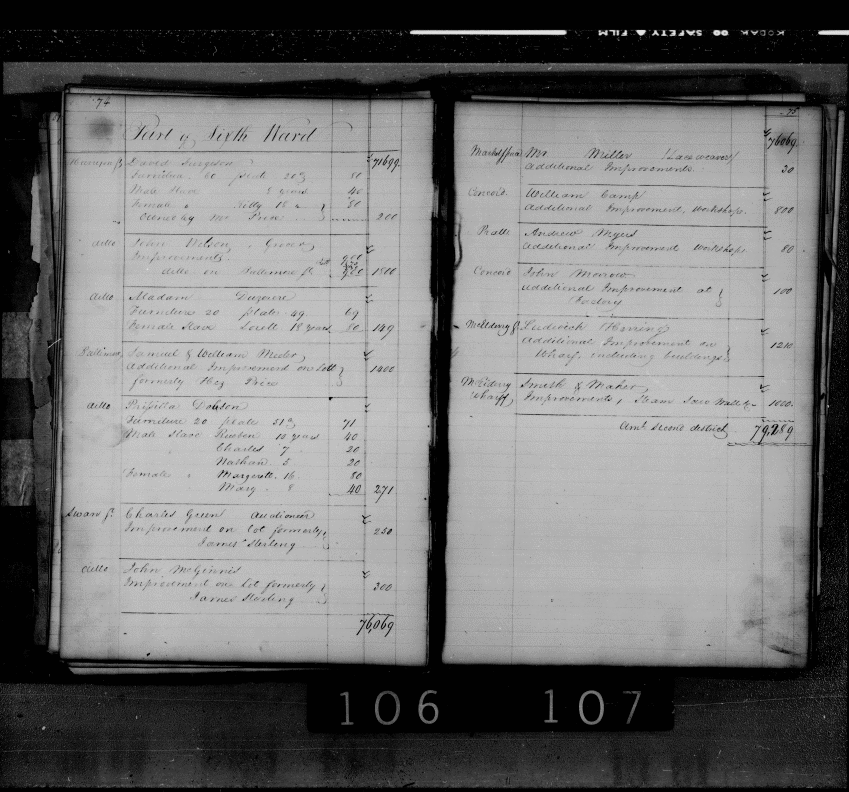 KODAK SAFETY FILM
74
Part of Sixth Ward
71699
David Furgeson
Furniture 60 plate 20 50
Male Slave 8 years 40
Female " Milly 15 " 50
Owned by Mr Price 200
ditto John Wilson, Grocer
Improvements 900
ditto on Baltimore st 900 1800
ditto Madam
Furniture 20 plate 49 69
Female Slave 18 years 80 149
Baltimore Samuel & William
Additional Improvement on Lott 1400
formerly Price
ditto Prisilla
Furniture 20 plate 51 71
Male Slave Reuben 10 years 40
Charles 7 20
Nathan 5 20
Female " Margarett 16 80
Mary 8 40 271
Charles Green Auctioneer
Improvement on lot formerly 250
James Sterling
ditto John McGinnis
Improvement on Lot formerly 300
James Sterling
76,069
75
76069
Market Space Mr Miller
Additional Improvements 20
Concord William Camp
Additional Improvement, Workshops 800
Pratt Andrew Myers
Additional Improvement Workshops 80
Concord John Morrow
Additional Improvement at 100
Factory
McElderry st Ludwick Herring
Additional Improvement on 1210
Wharf including buildings
McElderry Smith & Maher
Wharf Improvements, Steam 1000
Amt second district 79,289
106 107